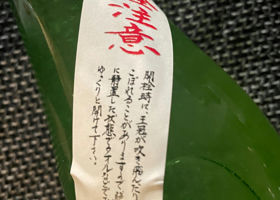 注意
開栓時に、王冠が吹き飛んだり
こぼれることがありますので
に静置した状態で
ゆっくりと開けて下さい。